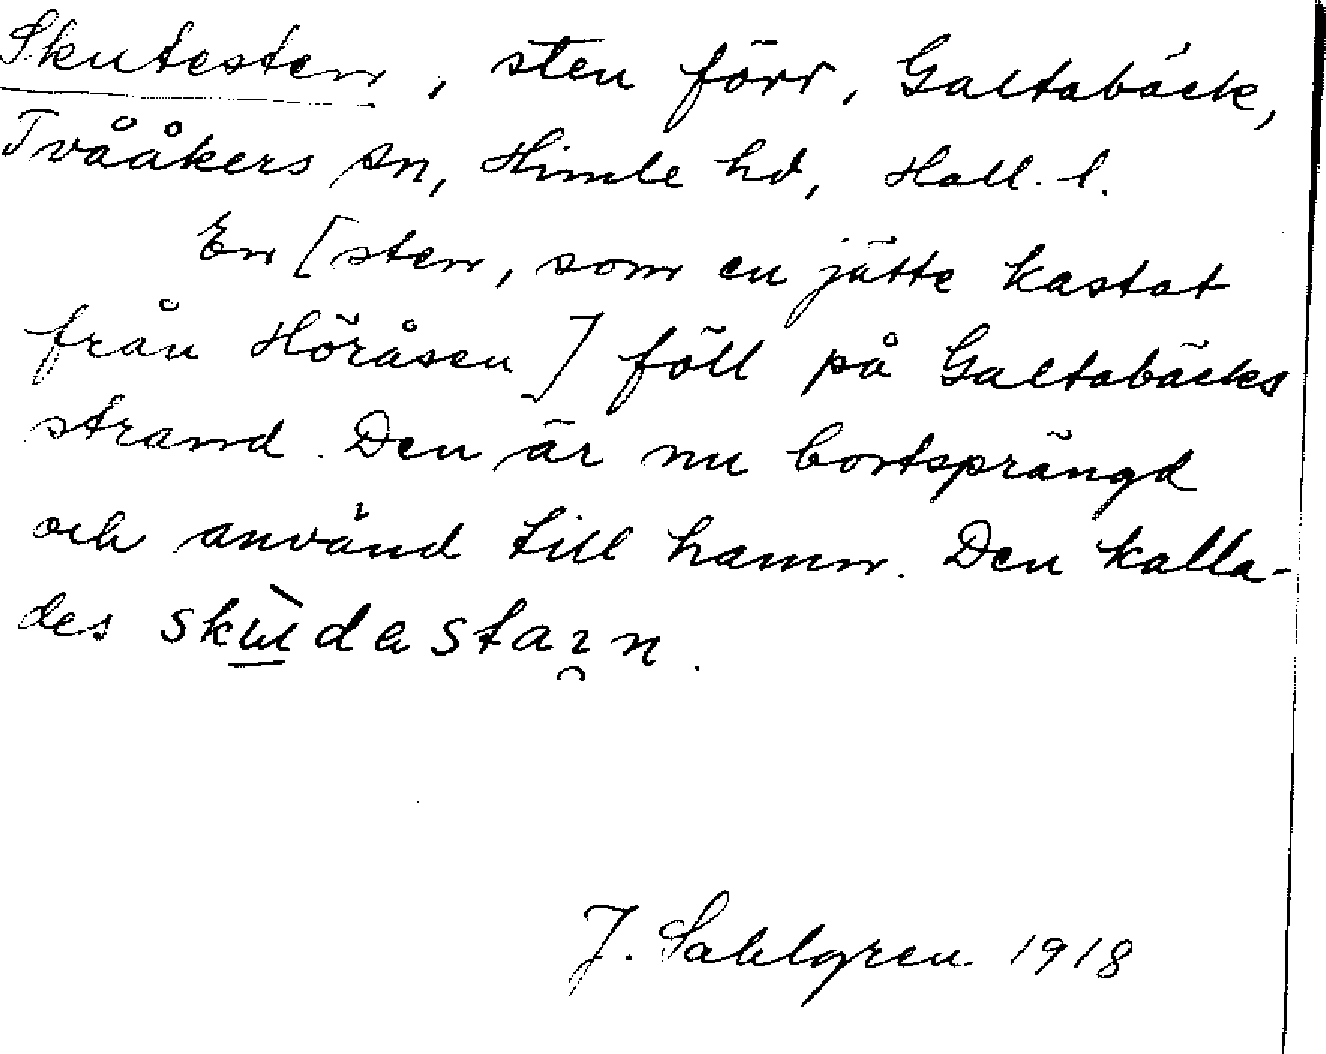 Skutesten, sten förr, Galtabäck,
Tvååkers sn, Himle hd, Hall. l.
En [sten, som en jätte kastat
från Höråsen] föll på Galtabäcks
strand. Den är nu bortsprängd
och använd till hamn. Den kalla-
des
J. Sahlgren 1918